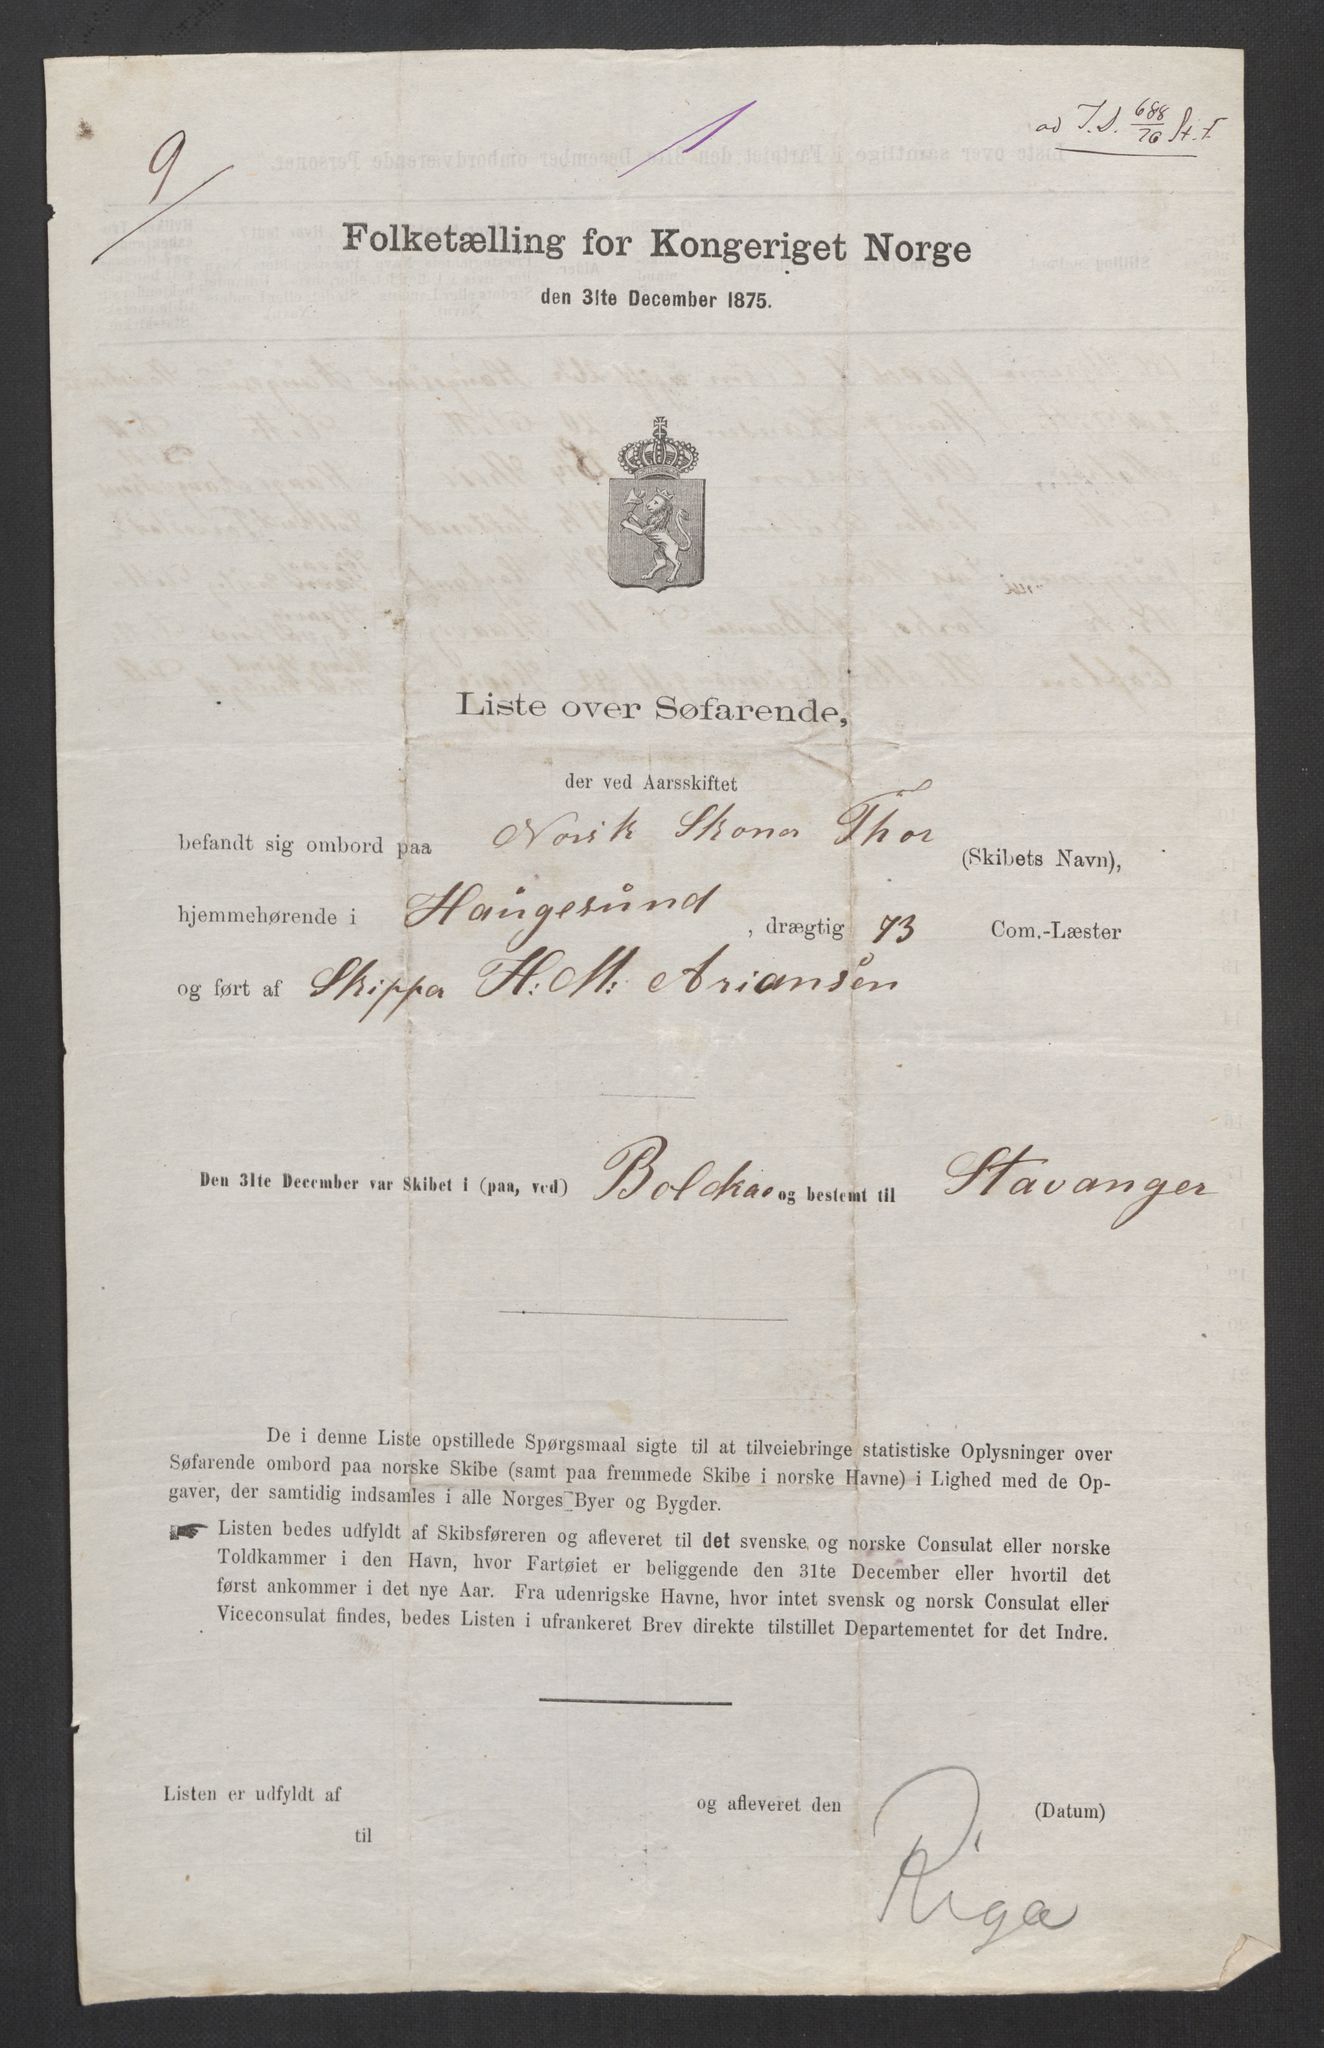 9
1
ad J.D. 688/76 St.T.
Folketælling for Kongeriget Norge
den 31te December 1875.
Liste over Søfarende,
der ved Aarsskiftet
befandt sig ombord paa Norsk Skoner Thor (Skibets Navn),
hjemmehørende i Haugesund, drægtig 73 Com.-Læster
og ført af Skipper H: M: Ariansen
Den 31te December var Skibet i (paa, ved) Bolderaa og bestemt til Stavanger
De i denne Liste opstillede Spørgsmaal sigte til at tilveiebringe statistiske Oplysninger over
Søfarende ombord paa norske Skibe (samt paa fremmede Skibe i norske Havne) i Lighed med de Op-
gaver, der samtidig indsamles i alle Norges Byer og Bygder.
☛ Listen bedes udfyldt af Skibsføreren og afleveret til det svenske og norske Consulat eller norske
Toldkammer i den Havn, hvor Fartøiet er beliggende den 31te December eller hvortil det
først ankommer i det nye Aar. Fra udenrigske Havne, hvor intet svensk og norsk Consulat eller
Viceconsulat findes, bedes Listen i ufrankeret Brev direkte tilstillet Departementet for det Indre.
Listen er udfyldt af og afleveret den (Datum)
til
Riga